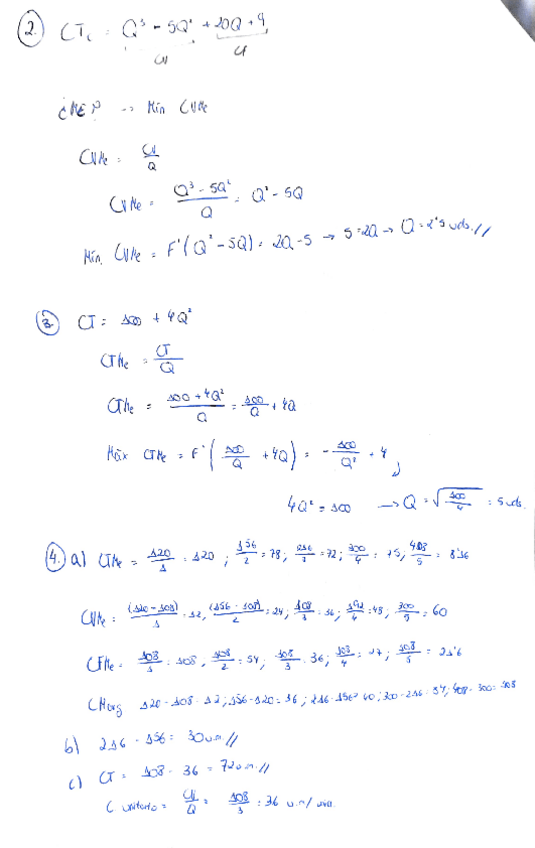 2. CTc = Q³ - 5Q² + 20Q + 4
CV CF
CMEP → Min CVMe
CVMe = CV/Q
CVMe = (Q³ - 5Q²)/Q = Q² - 5Q
Min. CVMe = F'(Q² - 5Q) = 2Q - 5 → 5 = 2Q → Q = 2'5 uds.//
3. CT = 100 + 4Q²
CTMe = CT/Q
CTMe = (100 + 4Q²)/Q = 100/Q + 4Q
Máx CTMe = F'(100/Q + 4Q) = -100/Q² + 4
4Q² = 100 → Q = √(100/4) = 5 uds.
4. a) CTMe = 120/1 = 120; 156/2 = 78; 216/3 = 72; 300/4 = 75; 408/5 = 81'6
CVMe = (120-108)/1 = 12, (156-108)/2 = 24; 108/3 = 36; 192/4 = 48; 300/5 = 60
CFMe = 108/1 = 108, 108/2 = 54; 108/3 = 36; 108/4 = 27; 108/5 = 21'6
CMarg 120-108 = 12; 156-120 = 36; 216-156 = 60; 300-216 = 84; 408-300 = 108
b) 216 - 156 = 30 u.m.//
c) CT = 108 - 36 = 72 u.m.//
C unitario = CV/Q = 108/3 = 36 u.m/